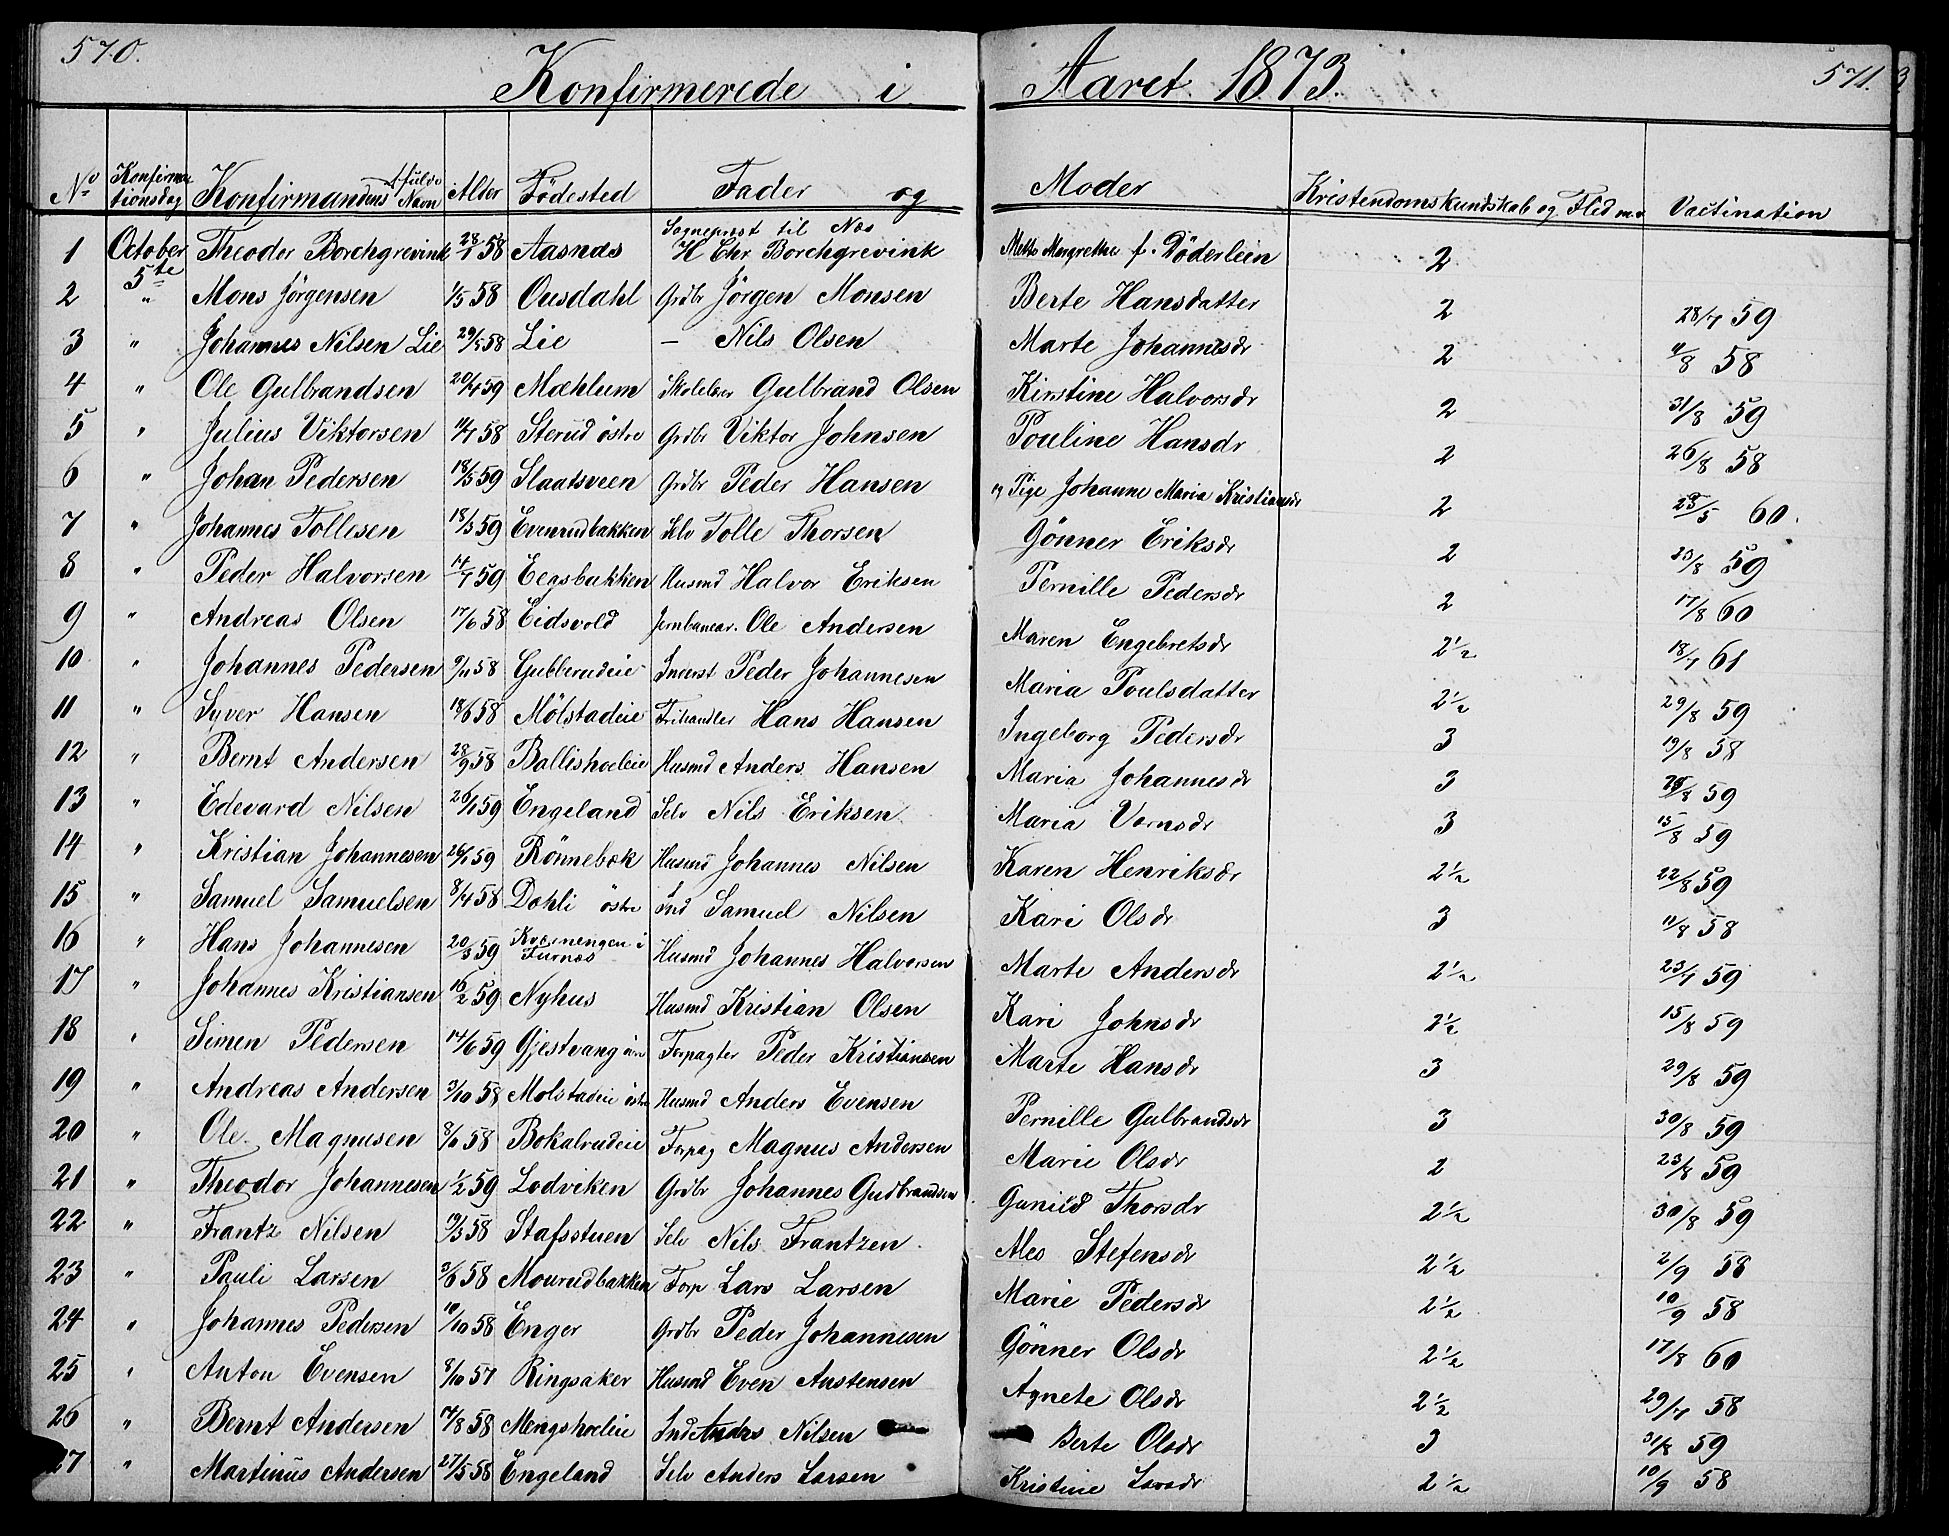 570. 571.
Konfirmerede i Aaret 1873.
No Konfirmationsdag Konfirmandens fulde Navn Alder Födested Fader og Moder Kristendomskundskab og Flid m.v. Vactination
1 October 5te Theodor Borchgrevink 28/7 58 Aasnæs Sogneprest til Næs H Chr Borchgrevink Mette Margrethe f. Döderlein 2
2 " Mons Jörgensen 1/5 58 Ousdahl Grdbr Jörgen Monsen Berte Hansdatter 2 28/7 59
3 " Johannes Nilsen Lie 29/5 58 Lie — Nils Olsen Marte Johannesdr 2 11/8 58
4 " Ole Gulbrandsen 20/4 59 Mæhlum Skolelærer Gulbrand Olsen Kirstine Halvorsdr 2 31/8 59
5 " Julius Viktorsen 14/7 58 Sterud östre Grdbr Viktor Johnsen Pouline Hansdr 2 26/8 58
6 " Johan Pedersen 18/5 59 Slaatsveen Grdbr Peder Hansen og Pige Johanne Maria Kristiansdr 2 25/5 60.
7 " Johannes Tollesen 18/3 59 Evenrudbakken Selv Tolle Thorsen Gönner Eriksdr 2 23/8 59
8 " Peder Halvorsen 14/7 59 Eegsbakken Husmd Halvor Eriksen Pernille Pedersdr 2 17/8 60
9 " Andreas Olsen 17/6 58 Eidsvold Jernbanear. Ole Andersen Maren Engebretsdr 2 1/2 18/7 61
10 " Johannes Pedersen 9/11 58 Gubberudeie Inderst Peder Johannesen Maria Poulsdatter 2 1/2 29/8 59
11 " Syver Hansen 18/6 58 Mölstadeie Frihandler Hans Hansen Ingeborg Pedersdr 3 19/8 58
12 " Bernt Andersen 28/9 58 Ballishoeleie Husmd Anders Hansen Maria Johannesdr 3 26/8 59
13 " Edevard Nilsen 26/1 59 Engeland Selv Nils Eriksen Maria Vornsdr 3 15/8 59
14 " Kristian Johannesen 26/1 59 Rönnebæk Husmd Johannes Nilsen Karen Henriksdr 2 1/2 22/8 59
15 " Samuel Samuelsen 8/4 58 Dohli östre Ind Samuel Nilsen Kari Olsdr 3 11/8 58
16 " Hans Johannesen 20/3 59 Kværnengen i Furnæs Husmd Johannes Halvorsen Marte Andersdr 2 1/2 23/7 59
17 " Johannes Kristiansen 16/2 59 Nyhus Husmd Kristian Olsen Kari Johnsdr 2 1/2 15/8 59
18 " Simen Pedersen 14/6 59 Gjestvang Forpagter Peder Kristiansen Marte Hansdr 3 29/8 59
19 " Andreas Andersen 3/10 58 Molstadeie östre Husmd Anders Evensen Pernille Gulbrandsdr 3 30/8 59
20 " Ole Magnusen 8/10 58 Bokalrudeie Forpag Magnus Andersen Marie Olsdr 2 23/8 59
21 " Theodor Johannesen 1/2 59 Lodviken Grdbr Johannes Gudbrandsen Gunild Thorsdr 2 1/2 30/8 59
22 " Frantz Nilsen 19/3 58 Stafsstuen Selv Nils Frantzen Alis Stefensdr 2 1/2 2/9 58
23 " Pauli Larsen 3/6 58 Mourudbakken Forp Lars Larsen Marie Pedersdr 2 1/2 10/9 58
24 " Johannes Pedersen 10/10 58 Enger Grdbr Peder Johannesen Gönner Olsdr 2 1/2 17/8 60
25 " Anton Evensen 8/10 57 Ringsaker Husmd Even Anstensen Agnete Olsdr 2 1/2 29/7 58
26 " Bernt Andersen 14/8 58 Mengshoeleie Ind Anders Nilsen Berte Olsdr 3 31/8 59
27 " Martinus Andersen 27/5 58 Engeland Selv Anders Larsen Kristine Larsdr 2 1/2 10/9 58